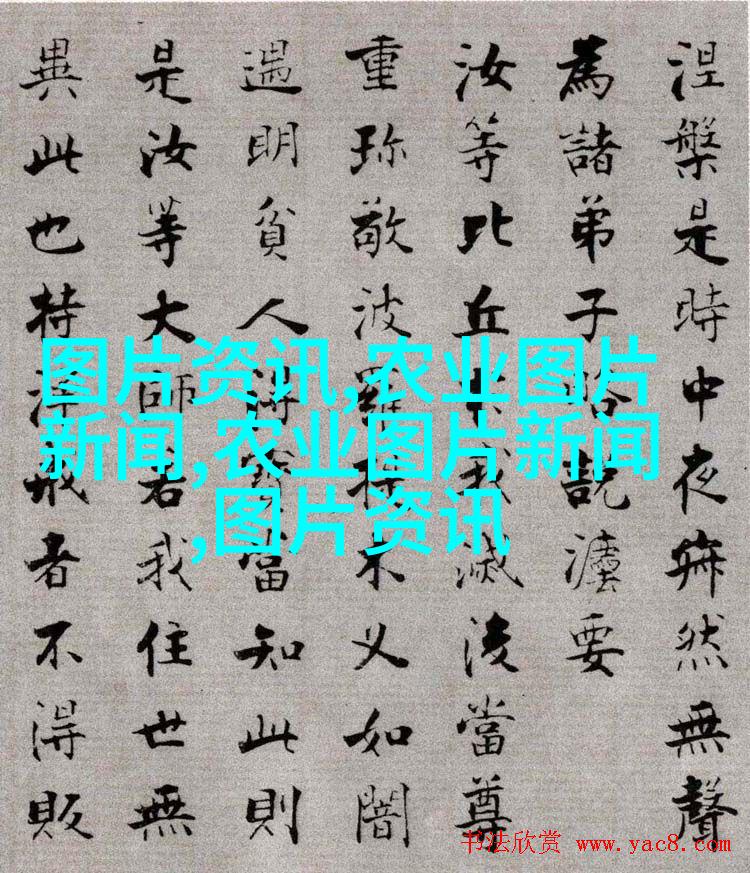 涅槃是時中夜寂然無聲
為諸弟子略說灋要
汝等比丘於我滅後當尊
重珍敬波羅提木叉如闇
遇明貧人得寶當知此則
是汝等大師若我住世無
異此也持淨戒者不得販
图片资讯,农业图片
新闻,农业图片新闻
,图片资讯
书法欣赏 www.yac8.com